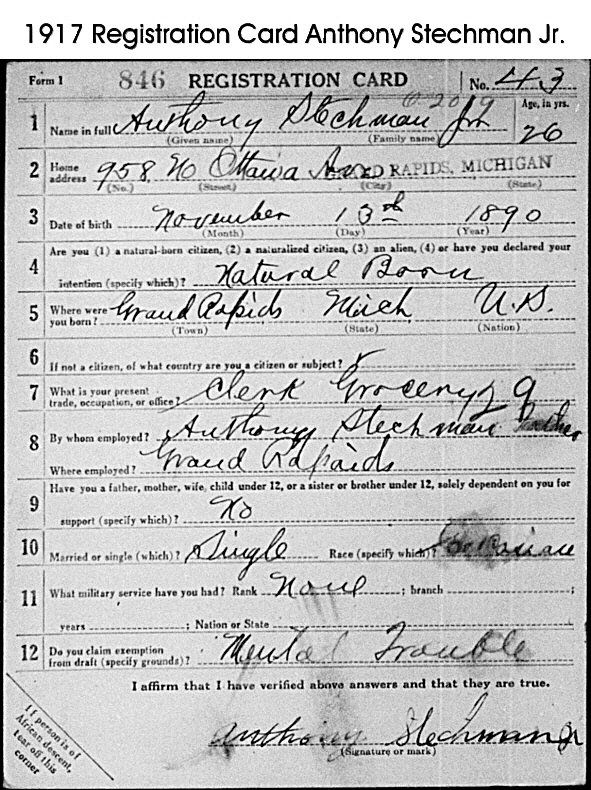 1917 Registration Card Anthony Stechman Jr.
Form 1 846 REGISTRATION CARD No. 43
1 Name in full Anthony Stechman Jr Age, in yrs. 26
(Given name) (Family name)
2 Home address 958 No Ottawa Ave GRAND RAPIDS, MICHIGAN
(No.) (Street) (City) (State)
3 Date of birth November 13th 1890
(Month) (Day) (Year)
4 Are you (1) a natural-born citizen, (2) a naturalized citizen, (3) an alien, (4) or have you declared your
intention (specify which)? Natural Born
5 Where were you born? Grand Rapids Mich U.S.
(Town) (State) (Nation)
6 If not a citizen, of what country are you a citizen or subject?
7 What is your present trade, occupation, or office? Clerk Grocery 9
8 By whom employed? Anthony Stechman Father
Where employed? Grand Rapids
9 Have you a father, mother, wife, child under 12, or a sister or brother under 12, solely dependent on you for
support (specify which)? No
10 Married or single (which)? Single Race (specify which)?
11 What military service have you had? Rank None ; branch ;
years ; Nation or State
12 Do you claim exemption from draft (specify grounds)? Mental Trouble
I affirm that I have verified above answers and that they are true.
Anthony Stechman Jr
(Signature or mark)
If person is of
African descent,
tear off this
corner